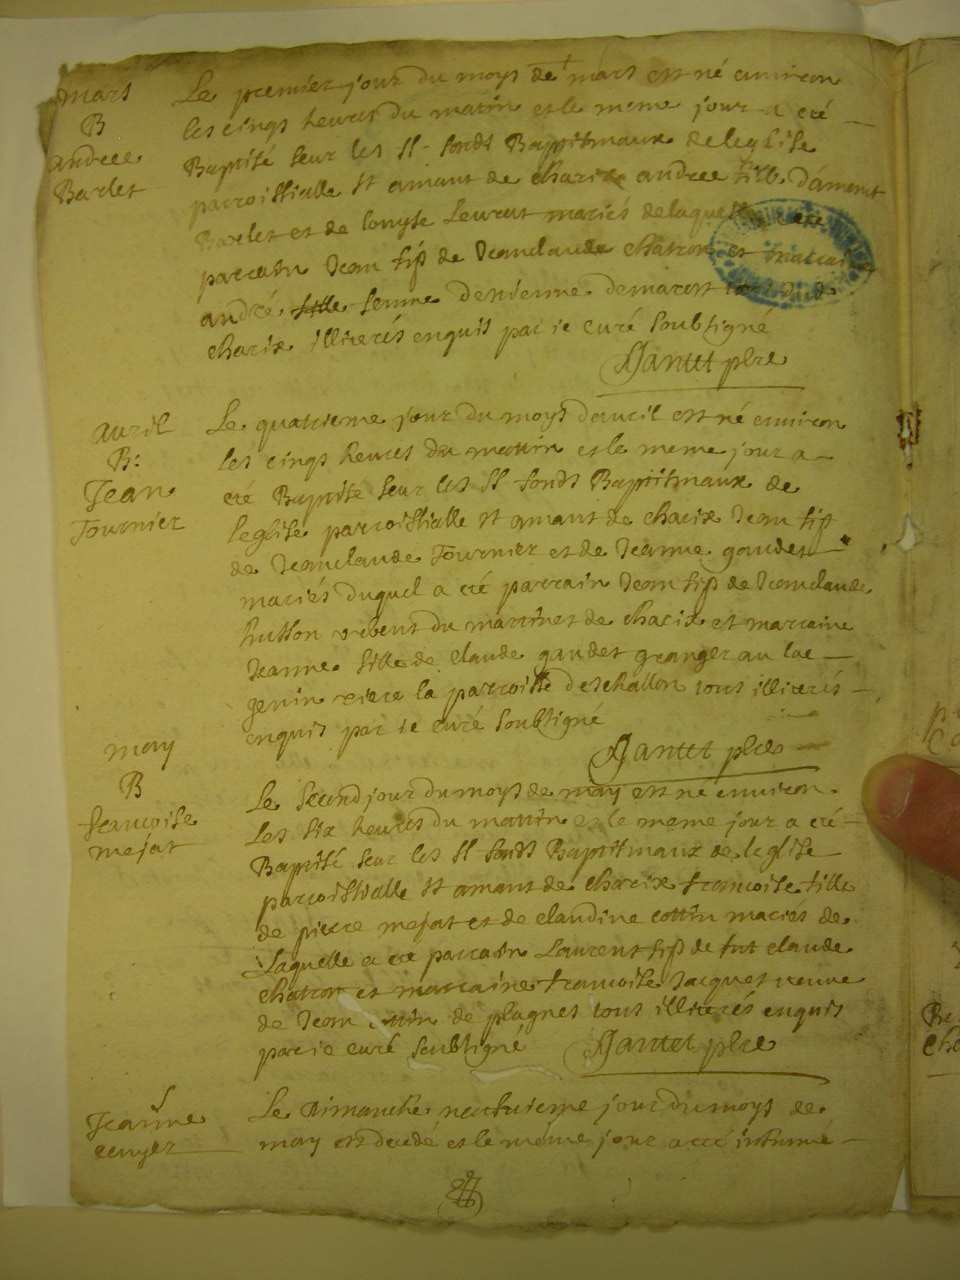 mars
B
andree
Barlet
Le premier jour du moys de mars est né environ
les cinqs heures du matin et le meme jour a eté
Baptisé seur les St fonds Baptismaux de leglise
parroissialle St amant de charix andree fille damant
Barlet et de lonyse mariés de laquelle a eté
parrain Jean fils de Jeanclaude chatron et marraine
andré femme destienne de
charix illiterés enquis par ie curé soubsigné
Jantet ptre
avril
B:
Jean
Tournier
Le quatrieme jour du moys davril est né environ
les cinqs heures du mattin et le meme jour a
eté Baptisé seur les St fonds Baptismaux de
leglise parroissialle St amant de charix Jean fils
de Jeanclaude Tournier et de Jeanne gaudet
mariés duquel a eté parrain Jean fils de Jeanclaude
hutson du martinet de charix et marraine
Jeanne fille de claude gaudet granger au lac
genin riere la parroisse deschallon tous illiterés
enquis par ie curé soubsigné
Jantet ptre
may
B
francoise
mejat
Le second jour du moys de may est né environ
les six heures du mattin et le meme jour a eté
Baptisé seur les St fonds Baptismaux de leglise
parroissialle St amant de charix francoise fille
de pierre mejat et de claudine cottin mariés de
Laquelle a eté parrain Laurent fils de fut claude
chatron et marraine francoise Jacquet veuve
de Jean cottin de plagnes tous illiterés enquis
par ie curé soubsigné Jantet ptre
S
Jeanne
Le Dimanche neufvieme jour du moys de
may est decedé et le méme jour a eté inhumé